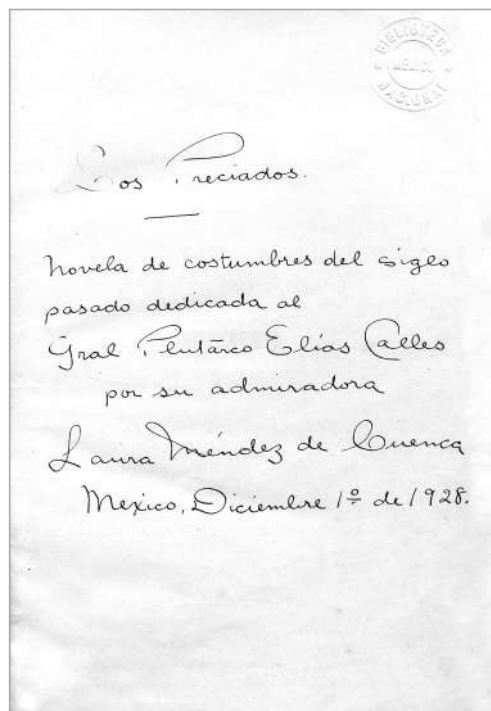 BIBLIOTECA
MEXICO
NACIONAL
Los Preciados.
Novela de costumbres del siglo
pasado dedicada al
Gral Plutarco Elías Calles
por su admiradora
Laura Méndez de Cuenca
Mexico, Diciembre 1º de 1928.